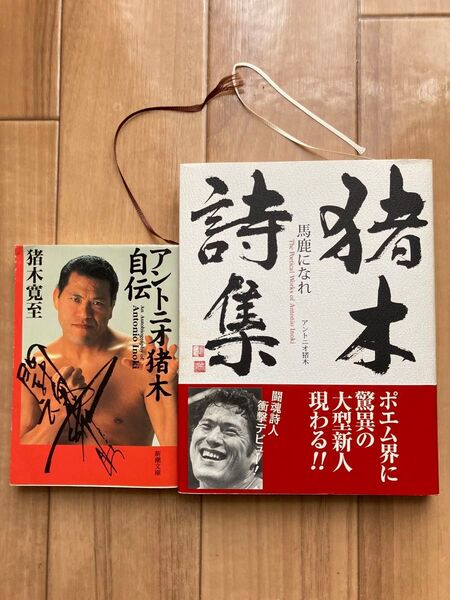 猪木
詩集
馬鹿になれ
The Poetical Works of Antonio Inoki
アントニオ猪木
ポエム界に
驚異の
大型新人
現わる!!
闘魂詩人
衝撃デビュー!!
アントニオ猪木
自伝
An Autobiography of
Antonio Inoki
猪木寛至
新潮文庫